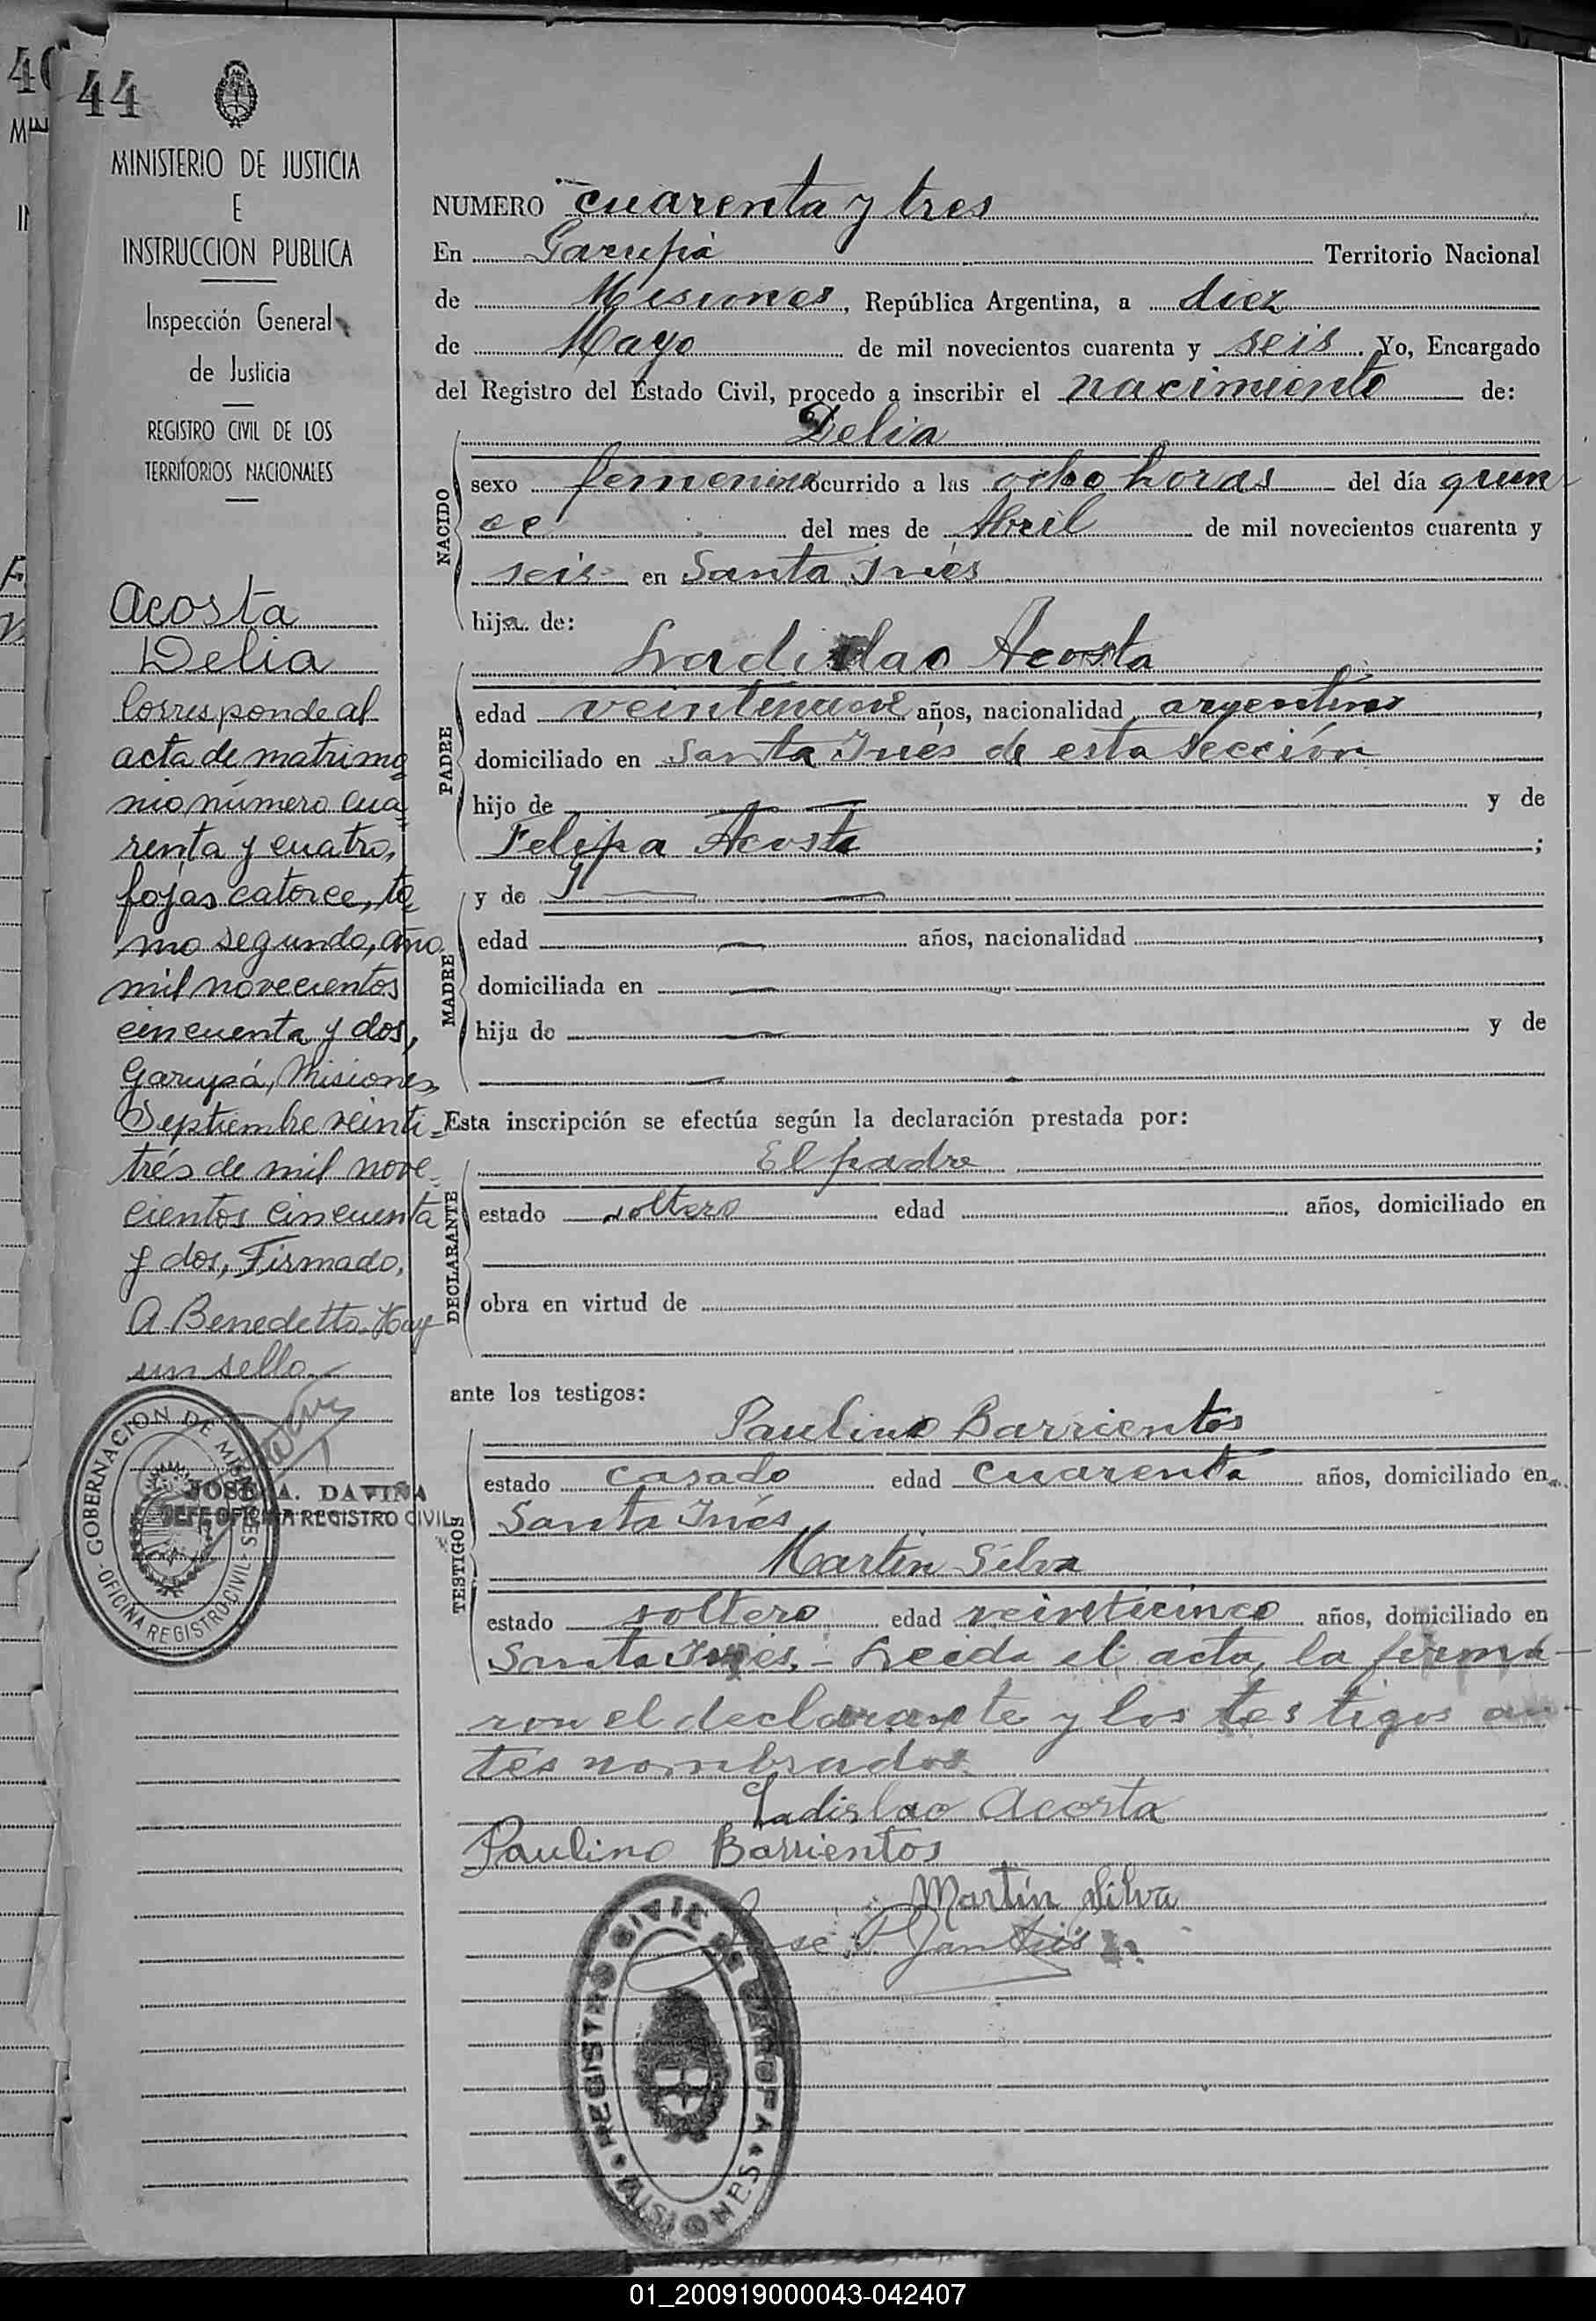 44
MINISTERIO DE JUSTICIA
E
INSTRUCCION PUBLICA
Inspección General
de Justicia
REGISTRO CIVIL DE LOS
TERRITORIOS NACIONALES
Acosta
Delia
Corresponde al
acta de matrimo
nio número cua
renta y cuatro,
fojas catorce, to
mo segundo, año
mil novecientos
cincuenta y dos,
Garupá, Misiones
Septiembre veinti=
trés de mil nove=
cientos cincuenta
y dos, Firmado,
A. Benedetto. Hay
un sello
GOBERNACION DE MISIONES
OFICINA REGISTRO CIVIL
JOSE A. DAVIÑA
JEFE OFICINA REGISTRO CIVIL
NUMERO cuarenta y tres
En Garupá Territorio Nacional
de Misiones, República Argentina, a diez
de Mayo de mil novecientos cuarenta y seis. Yo, Encargado
del Registro del Estado Civil, procedo a inscribir el nacimiento de:
NACIDO
Delia
sexo femenino ocurrido a las ocho horas del día quin
ce del mes de Abril de mil novecientos cuarenta y
seis en Santa Inés
hija de:
PADRE
Ladislao Acosta
edad veintenueve años, nacionalidad argentino,
domiciliado en Santa Inés de esta Sección
hijo de — — y de
Felipa Acosta ;
MADRE
y de — —
edad — años, nacionalidad ,
domiciliada en —
hija de — y de
—
Esta inscripción se efectúa según la declaración prestada por:
DECLARANTE
El padre
estado soltero edad años, domiciliado en
obra en virtud de
ante los testigos:
TESTIGOS
Paulino Barrientos
estado casado edad cuarenta años, domiciliado en
Santa Inés
Martin Silva
estado soltero edad veinticinco años, domiciliado en
Santa Inés. - Leida el acta, la firma-
ron el declarante y los testigos an-
tes nombrados.
Ladislao Acosta
Paulino Barrientos
Martín Silva
REGISTRO CIVIL DE GARUPA
MISIONES
01_200919000043-042407